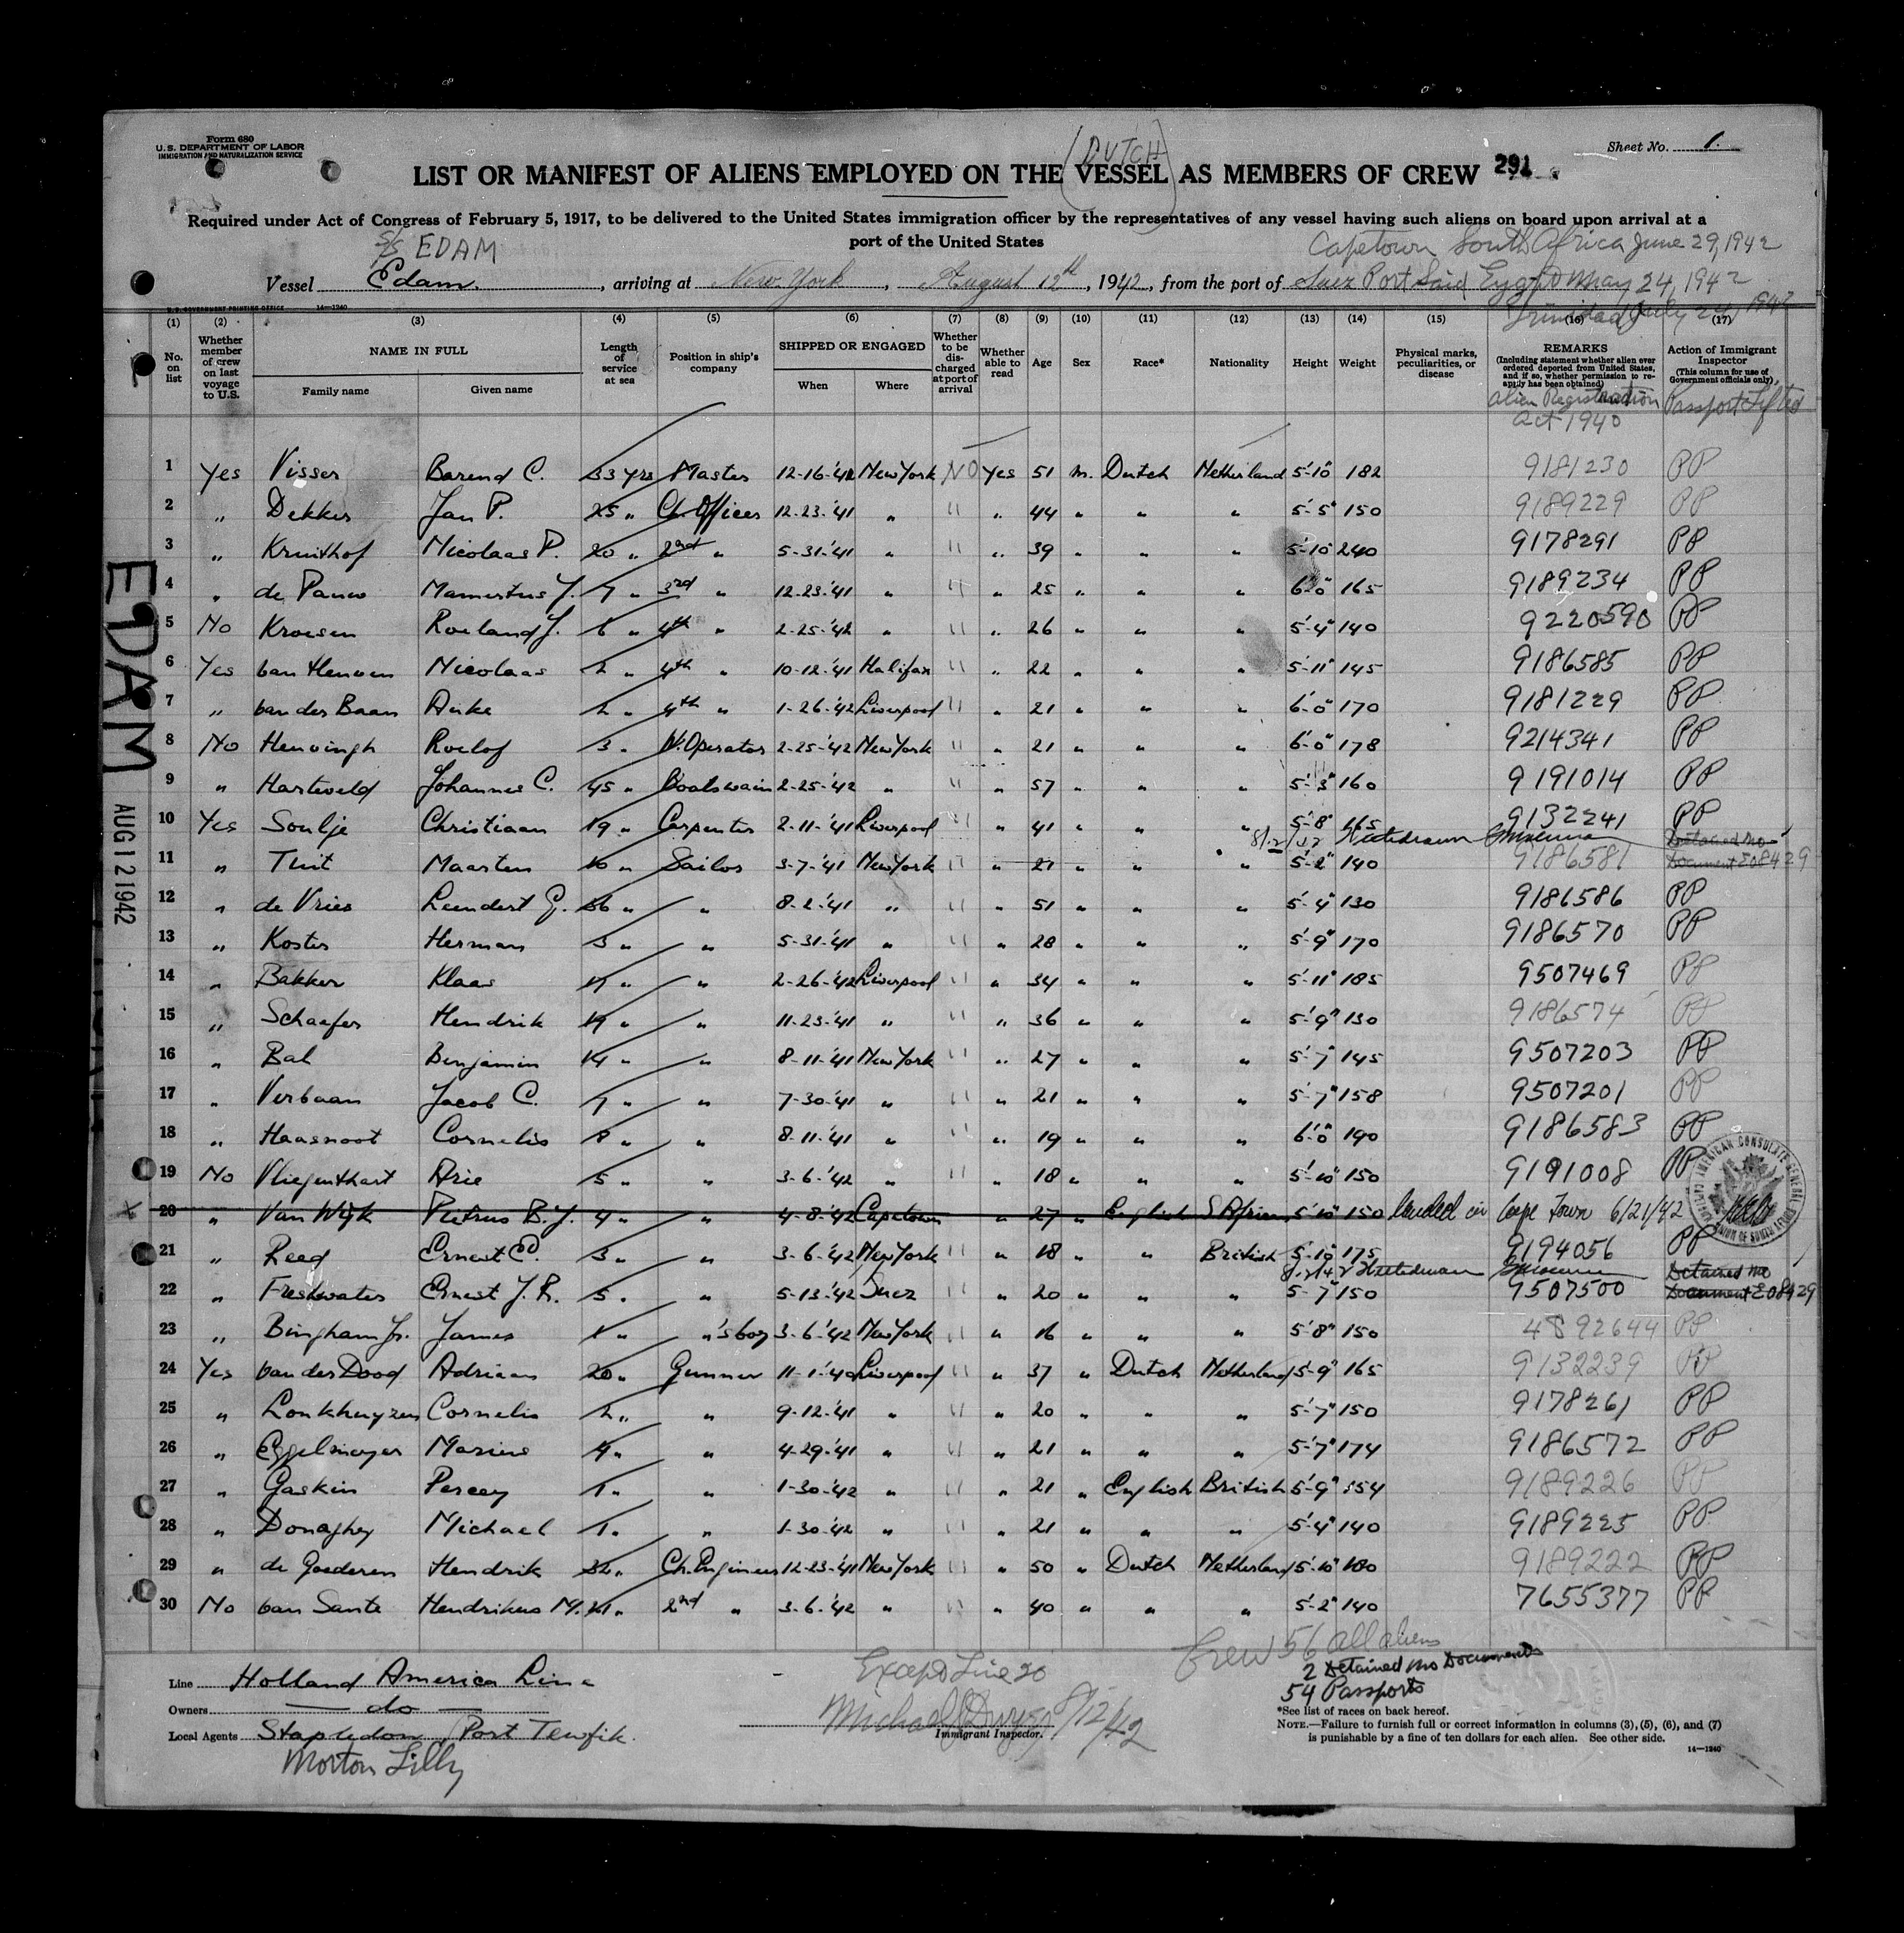 Form 680
U.S. DEPARTMENT OF LABOR
IMMIGRATION AND NATURALIZATION SERVICE
Sheet No. 1.
(DUTCH)
LIST OR MANIFEST OF ALIENS EMPLOYED ON THE VESSEL AS MEMBERS OF CREW 291
Required under Act of Congress of February 5, 1917, to be delivered to the United States immigration officer by the representatives of any vessel having such aliens on board upon arrival at a
port of the United States
S/S EDAM
Capetown South Africa June 29, 1942
Vessel Edam., arriving at New York, August 12th, 1942, from the port of Suez Port Said Egypt May 24, 1942
Trinidad July 1942
U.S. GOVERNMENT PRINTING OFFICE 14—1240
(1) (2) (3) (4) (5) (6) (7) (8) (9) (10) (11) (12) (13) (14) (15) (16) (17)
No. on list
Whether member of crew on last voyage to U.S.
NAME IN FULL
Family name
Given name
Length of service at sea
Position in ship's company
SHIPPED OR ENGAGED
When
Where
Whether to be discharged at port of arrival
Whether able to read
Age
Sex
Race*
Nationality
Height
Weight
Physical marks, peculiarities, or disease
REMARKS
(Including statement whether alien ever ordered deported from United States, and if so, whether permission to reapply has been obtained)
Action of Immigrant Inspector
(This column for use of Government officials only)
Alien Registration
Act 1940
Passport Lifted
1 Yes Visser Barend C. 33 yrs Master 12-16-'41 New York NO Yes 51 m. Dutch Netherland 5'-10" 182 9181230 PP
2 " Dekker Jan P. 25 " Ch. Officer 12-23-'41 " " " 44 " " " 5'-5" 150 9189229 PP
3 " Kruithof Nicolaas P. 20 " 2nd " 5-31-'41 " " " 39 " " " 5'-10" 240 9178291 PP
4 " de Pauw Mamertus J. 7 " 3rd " 12-23-'41 " " " 25 " " " 6'-0" 165 9189234 PP
5 No Kroesen Roeland J. 6 " 4th " 2-25-'42 " " " 26 " " " 5'-4" 140 9220590 PP
6 Yes van Heuven Nicolaas 2 " 4th " 10-12-'41 Halifax " " 22 " " " 5'-11" 145 9186585 PP
7 " van der Baan Auke 2 " 4th " 1-26-'42 Liverpool " " 21 " " " 6'-0" 170 9181229 PP
8 No Heuvingh Roelof 3 " W. Operator 2-25-'42 New York " " 21 " " " 6'-0" 178 9214341 PP
9 " Harteveld Johannes C. 45 " Boatswain 2-25-'42 " " " 57 " " " 5'-3" 160 9191014 PP
10 Yes Soulje Christiaan 19 " Carpenter 2-11-'41 Liverpool " " 41 " " " 5'-8" 165 9132241 PP
Detained no
11 " Tuit Maarten 10 " Sailor 3-7-'41 New York " " 21 " " 5'-2" 140 9186581 Document E08429
12 " de Vries Leendert G. 36 " " 8-2-'41 " " " 51 " " " 5'-4" 130 9186586 PP
13 " Koster Herman 3 " " 5-31-'41 " " " 28 " " " 5'-9" 170 9186570 PP
14 " Bakker Klaas 17 " " 2-26-'42 Liverpool " " 34 " " " 5'-11" 185 9507469 PP
15 " Schaefer Hendrik 19 " " 11-23-'41 " " " 36 " " " 5'-9" 130 9186574 PP
16 " Bal Benjamin 14 " " 8-11-'41 New York " " 27 " " " 5'-7" 145 9507203 PP
17 " Verbaan Jacob C. 7 " " 7-30-'41 " " " 21 " " " 5'-7" 158 9507201 PP
18 " Haasnoot Cornelis 8 " " 8-11-'41 " " " 19 " " " 6'-0" 190 9186583 PP
19 No Vliegenthart Arie 5 " " 3-6-'42 " " " 18 " " " 5'-10" 150 9191008 PP
20 " Van Wyk Petrus B.J. 4 " " 4-8-'42 Capetown " 27 " English S African 5'-10" 150 landed in Cape Town 6/21/42
21 " Reed Ernest E. 3 " " 3-6-'42 New York " " 18 " " British 5'-10" 175 9194056 PP
Detained no
22 " Freshwater Ernest J.R. 5 " " 5-13-'42 Suez " " 20 " " " 5'-7" 150 9507500 Document E08429
23 " Bingham Jr. James 1 " "'s boy 3-6-'42 New York " " 16 " " " 5'-8" 150 4892644 PP
24 Yes van der Dood Adriaan 20 " Gunner 11-1-'40 Liverpool " " 37 " Dutch Netherland 5'-9" 165 9132239 PP
25 " Lonkhuyzen Cornelis 2 " " 9-12-'41 " " " 20 " " " 5'-7" 150 9178261 PP
26 " Eggelmeyer Marinus 4 " " 4-29-'41 " " " 21 " " " 5'-7" 174 9186572 PP
27 " Gaskin Percey 1 " " 1-30-'42 " " " 21 " English British 5'-9" 154 9189226 PP
28 " Donaghey Michael 1 " " 1-30-'42 " " " 21 " " " 5'-4" 140 9189225 PP
29 " de Goederen Hendrik 32 " Ch. Engineer 12-23-'41 New York " " 50 " Dutch Netherland 5'-10" 180 9189222 PP
30 No van Sante Hendrikus M. 21 " 2nd " 3-6-'42 " " " 40 " " " 5'-2" 140 7655377 PP
EDAM
AUG 12 1942
AMERICAN CONSULATE GENERAL
UNION OF SOUTH AFRICA
Crew 56 all aliens
2 Detained no Documents
54 Passports
Except Line 20
Michael J Dwyer 8/12/42
Immigrant Inspector.
Line Holland America Line
Owners — do —
Local Agents Stapledon, Port Tewfik.
Morton Lilly
*See list of races on back hereof.
NOTE.—Failure to furnish full or correct information in columns (3), (5), (6), and (7)
is punishable by a fine of ten dollars for each alien. See other side.
14—1240